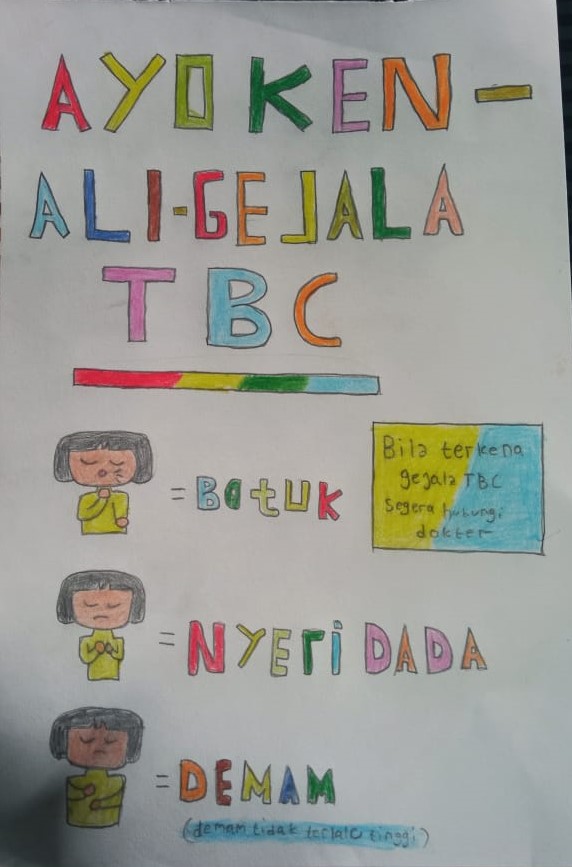 AYO KEN-
ALI-GEJALA
TBC
= Batuk
Bila terkena
gejala TBC
segera hubungi
dokter
= NYEri DADA
= DEMAM
(demam tidak terlalu tinggi)